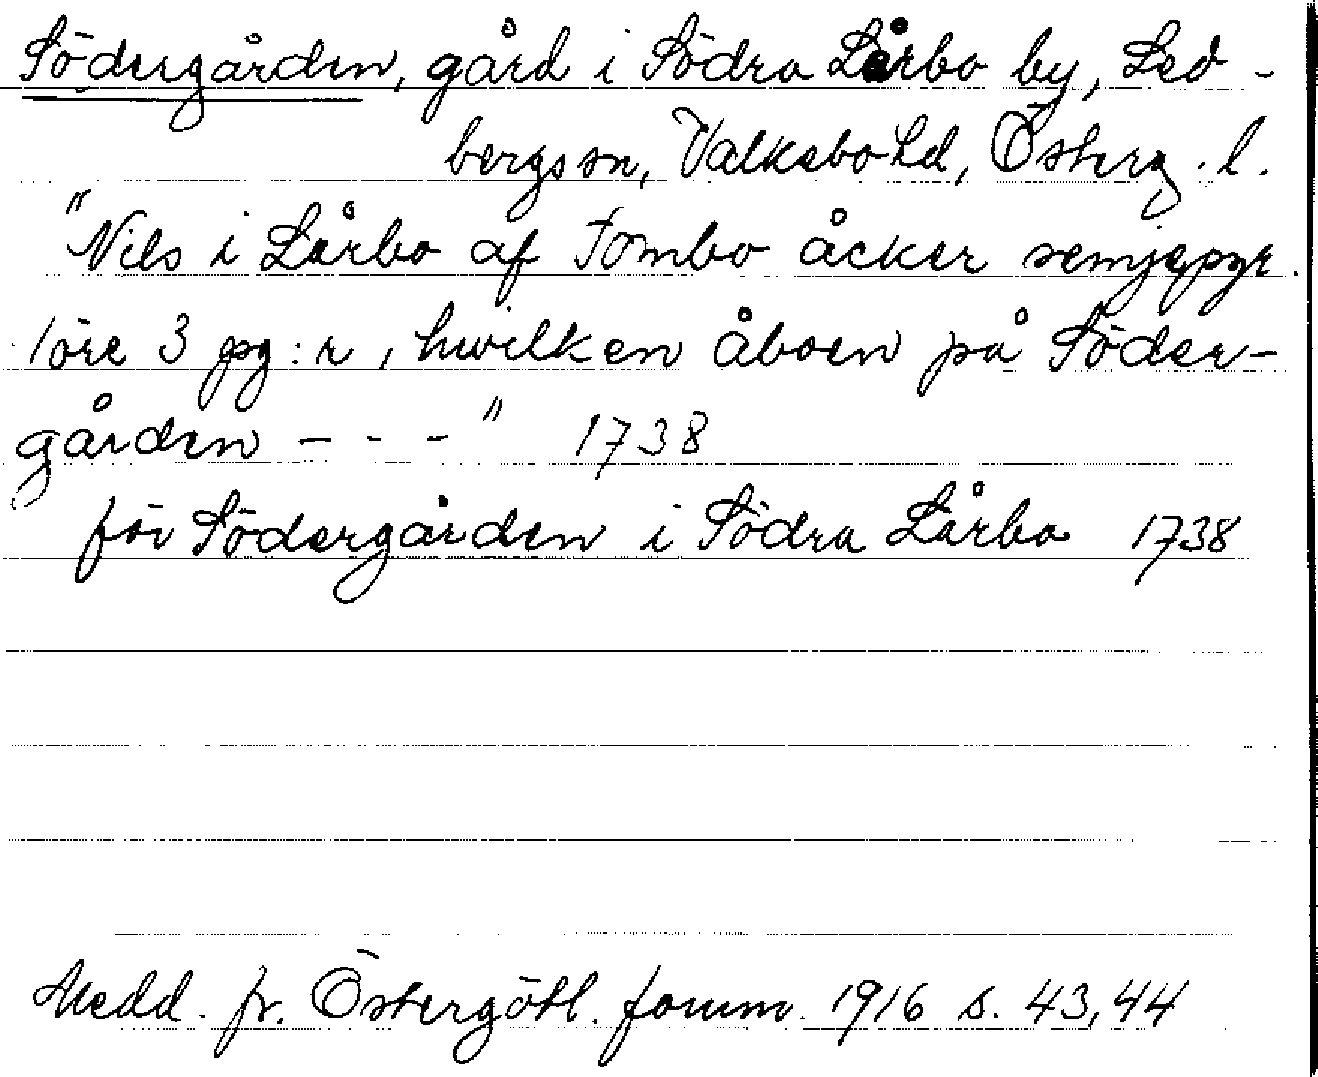 Södergården, gård i Södra Lårbo by, Led-
bergs sn, Valkebo hd, Österg. l.
"Nils i Lårbo af Tombo åcker
1 öre 3 pg:r, hwilken åboen på Söder-
gården - - -" 1738
för Södergården i Södra Lårbo 1738
Medd. fr. Östergötl. fornm. 1916 s. 43,44